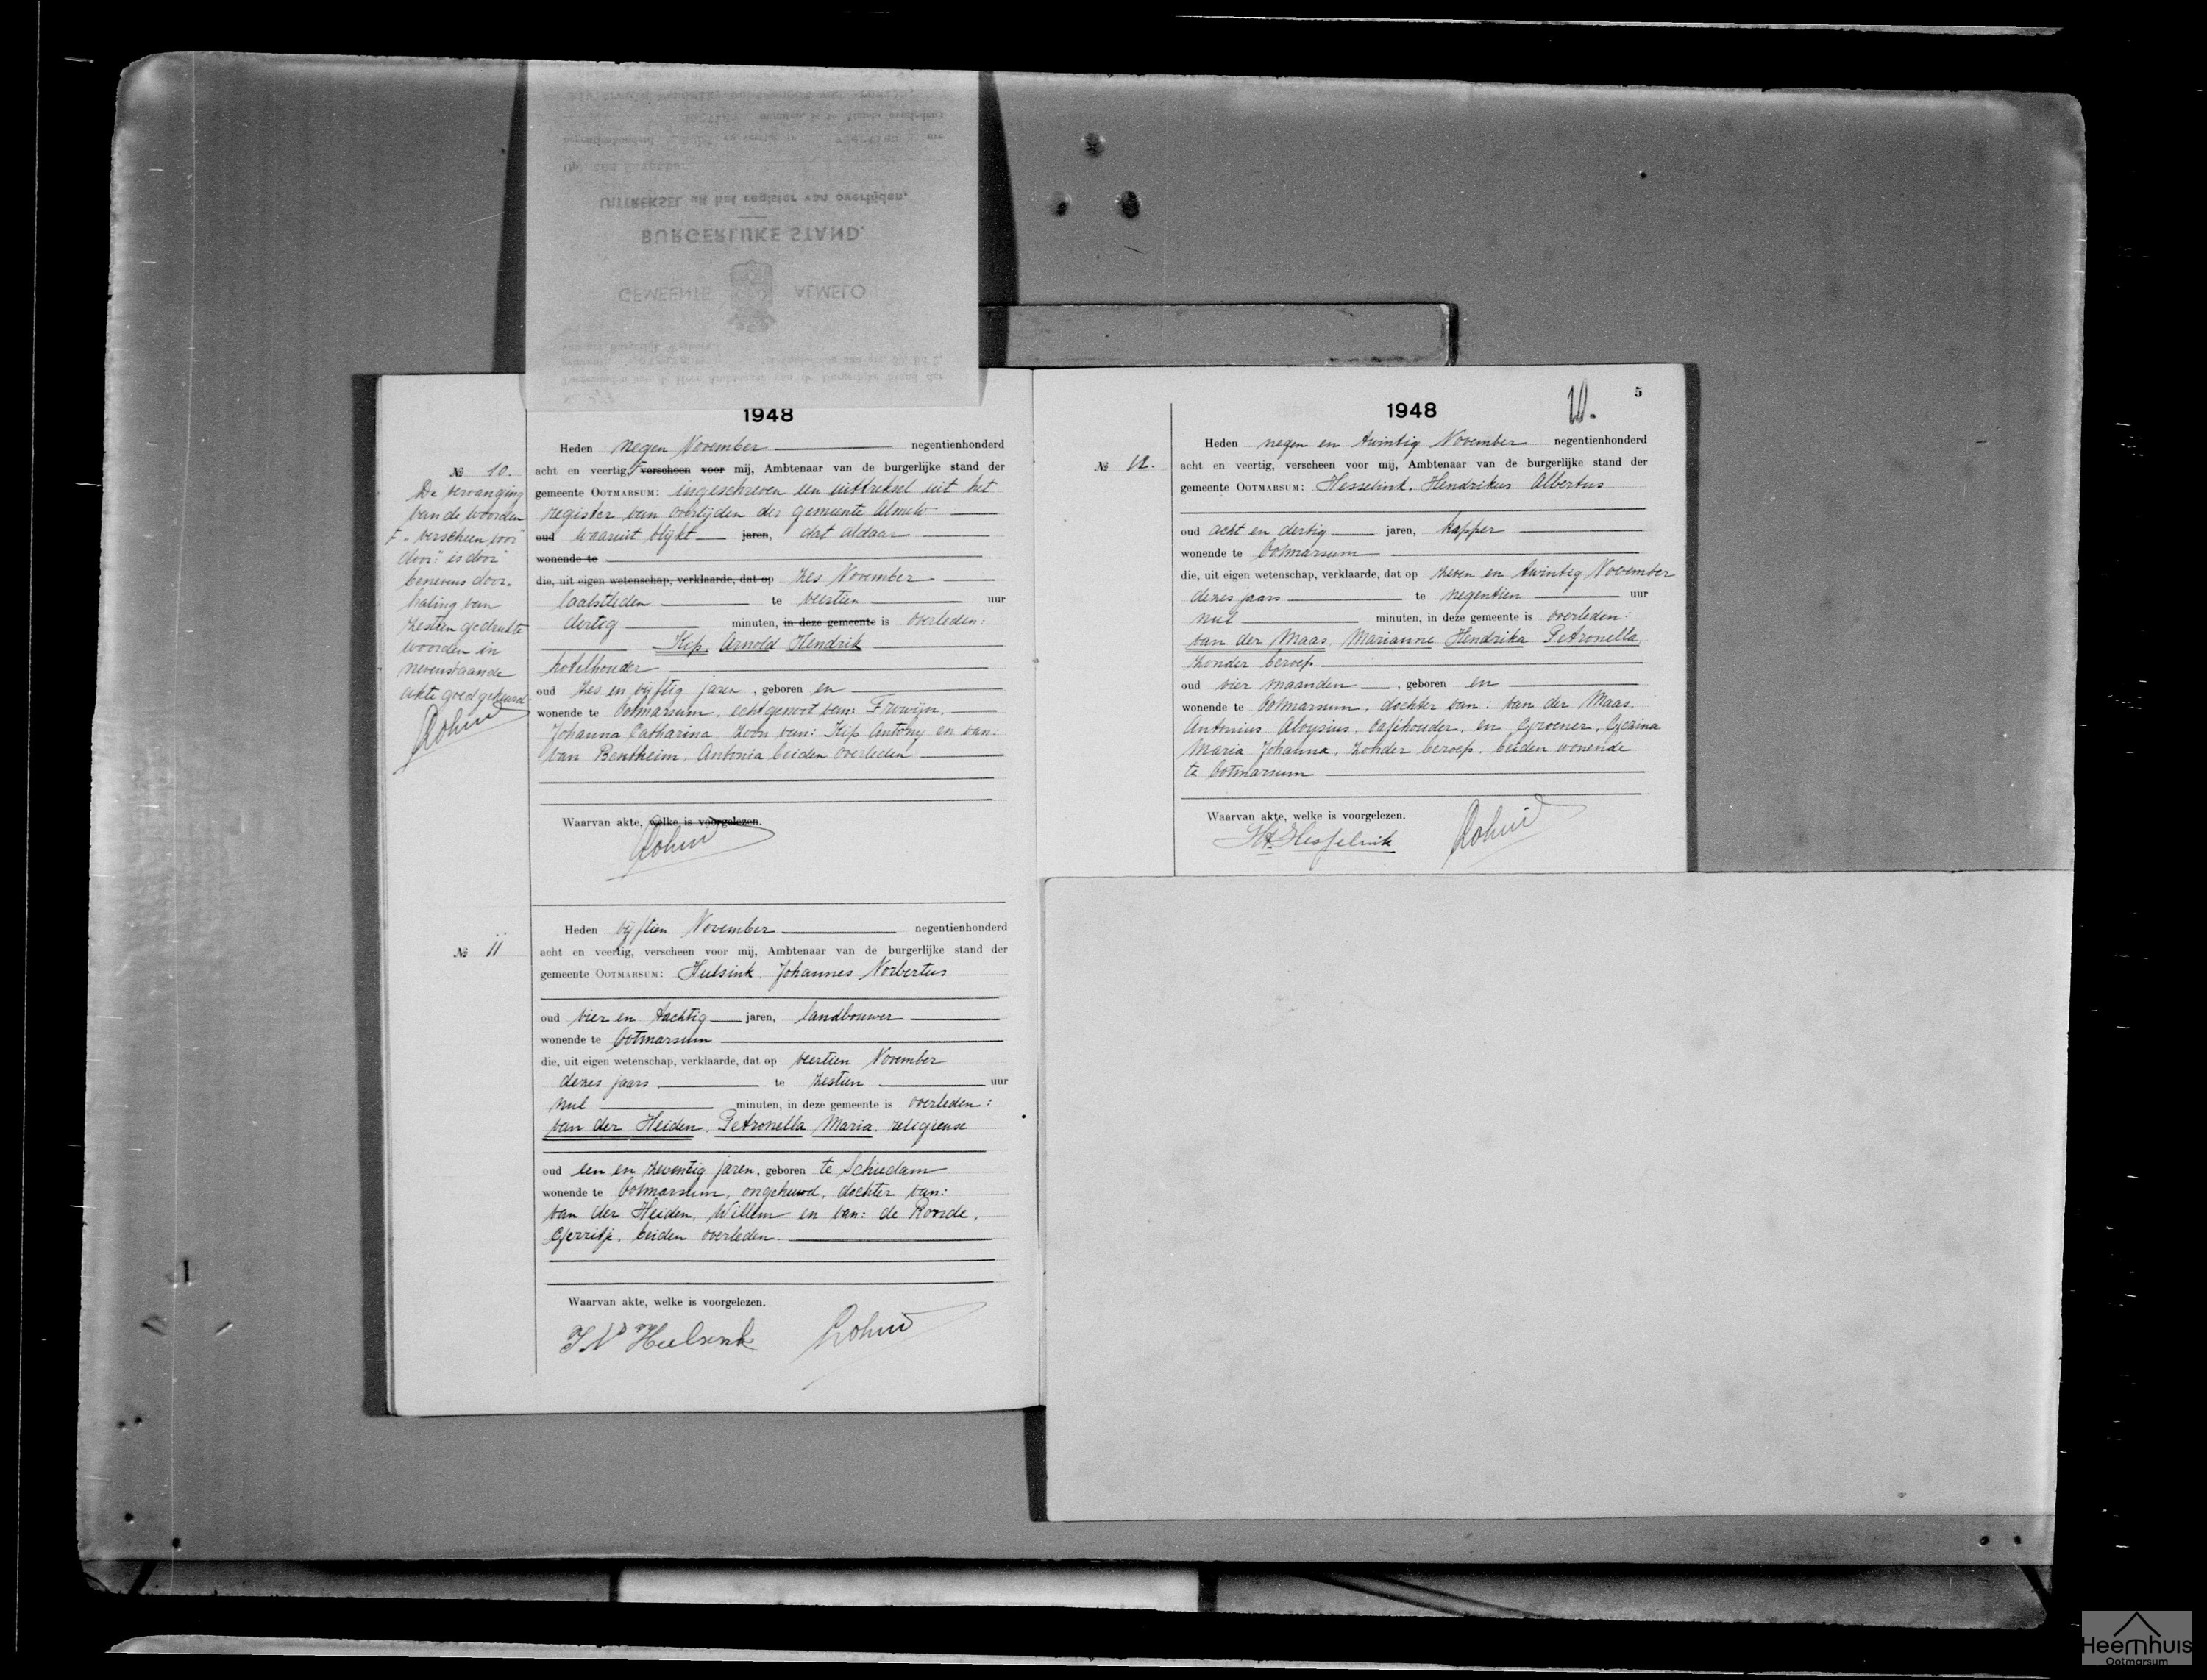 UITTREKSEL uit het register van overlijden,
BURGERLIJKE STAND.
GEMEENTE ALMELO
1948
Heden negen November negentienhonderd
acht en veertig, verscheen voor mij, Ambtenaar van de burgerlijke stand der
gemeente OOTMARSUM: ingeschreven een uittreksel uit het
register van overlijden der gemeente Almelo
oud waaruit blijkt jaren, dat aldaar
wonende te
die, uit eigen wetenschap, verklaarde, dat op zes November
laatstleden te veertien uur
dertig minuten, in deze gemeente is overleden:
Kip, Arnold Hendrik
hotelhouder
oud zes en vijftig jaren, geboren en
wonende te Ootmarsum, echtgenoot van: Frowijn,
Johanna Catharina, zoon van: Kip Antony en van:
van Bentheim, Antonia beiden overleden
Waarvan akte, welke is voorgelezen.
№ 10.
De vervanging
van de woorden
F "verscheen voor"
door: "is door"
benevens door-
haling van
zestien gedrukte
woorden in
nevenstaande
akte goedgekeurd.
№ 11
Heden vijftien November negentienhonderd
acht en veertig, verscheen voor mij, Ambtenaar van de burgerlijke stand der
gemeente OOTMARSUM: Hulsink, Johannes Norbertus
oud vier en tachtig jaren, landbouwer
wonende te Ootmarsum
die, uit eigen wetenschap, verklaarde, dat op veertien November
dezes jaars te zestien uur
nul minuten, in deze gemeente is overleden:
van der Heiden, Petronella Maria, religieuse
oud een en zeventig jaren, geboren te Schiedam
wonende te Ootmarsum, ongehuwd, dochter van:
van der Heiden, Willem en van: de Roode,
Gerritje, beiden overleden.
Waarvan akte, welke is voorgelezen.
J N Hulsink
1948
5
№ 12.
Heden negen en twintig November negentienhonderd
acht en veertig, verscheen voor mij, Ambtenaar van de burgerlijke stand der
gemeente OOTMARSUM: Hesselink, Hendrikus Albertus
oud acht en dertig jaren, kapper
wonende te Ootmarsum
die, uit eigen wetenschap, verklaarde, dat op zeven en twintig November
dezes jaars te negentien uur
nul minuten, in deze gemeente is overleden:
van der Maas, Marianne Hendrika Petronella
zonder beroep
oud vier maanden, geboren en
wonende te Ootmarsum, dochter van: van der Maas,
Antonius Aloysius, caféhouder, en Groener, Gezina
Maria Johanna, zonder beroep, beiden wonende
te Ootmarsum
Waarvan akte, welke is voorgelezen.
HA Hesselink
Heemhuis
Ootmarsum